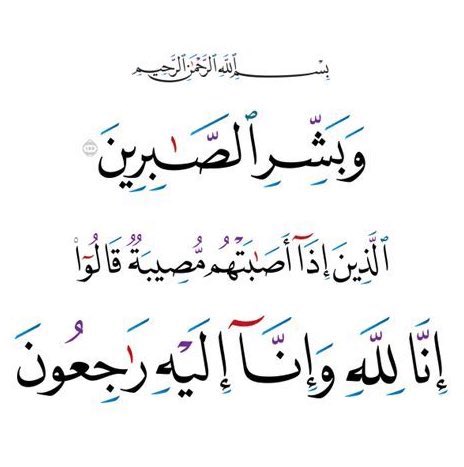 بِسْمِ ٱللَّهِ ٱلرَّحْمَٰنِ ٱلرَّحِيمِ
وَبَشِّرِ ٱلصَّٰبِرِينَ ١٥٥
ٱلَّذِينَ إِذَآ أَصَٰبَتْهُم مُّصِيبَةٌ قَالُوٓا۟
إِنَّا لِلَّهِ وَإِنَّآ إِلَيْهِ رَٰجِعُونَ